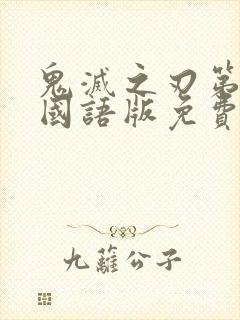 鬼滅之刃第
國語版免費
九蘺公子